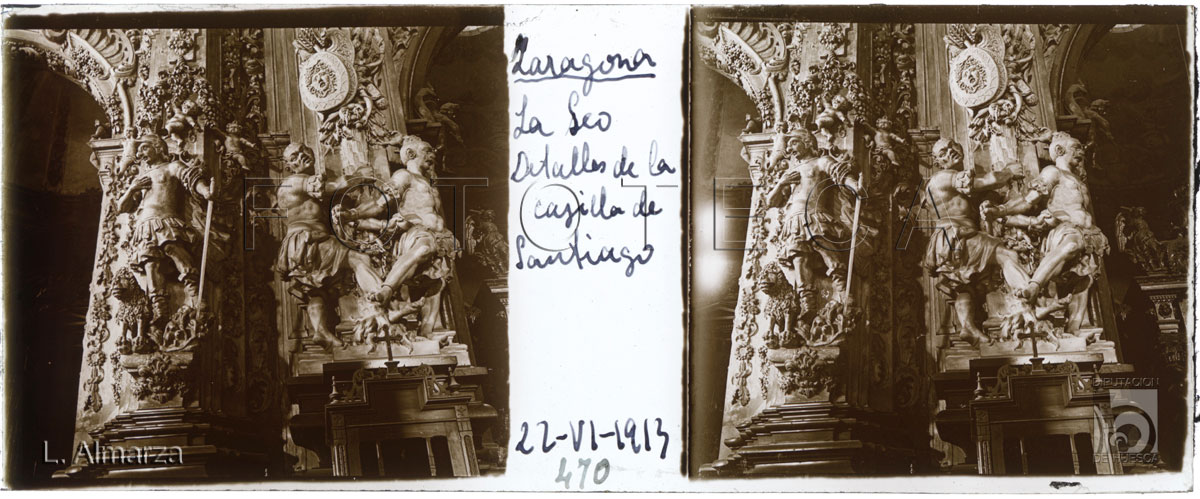 Zaragoza
La Seo
Detalles de la
capilla de
Santiago
22-VI-1913
470
FOTOTECA
L. Almarza
DIPUTACION
DE HUESCA